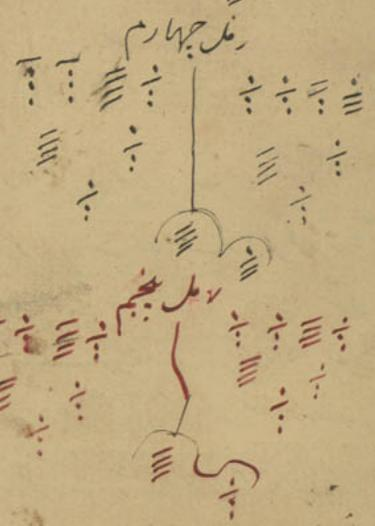 رمل چهارم
رمل پنجم